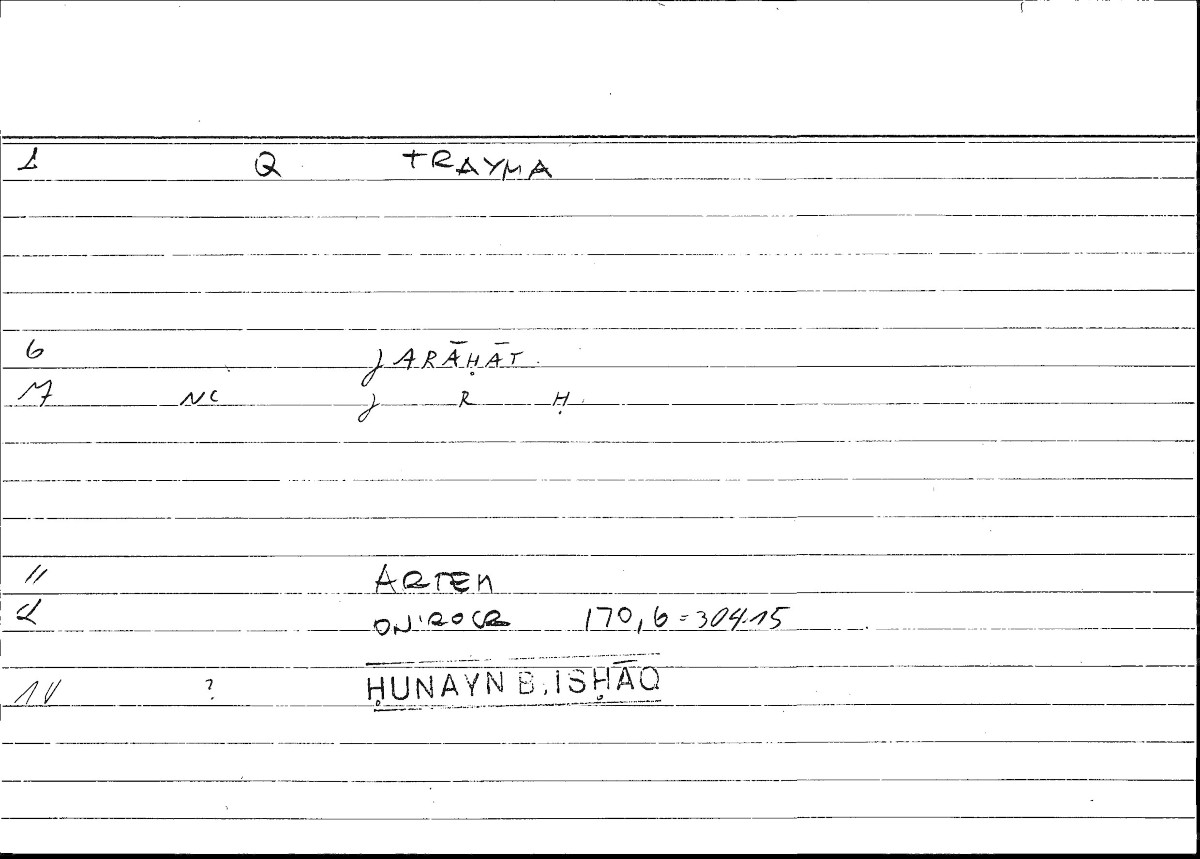 1 Q TRAYMA
6 JARĀḤĀT
M NC J R Ḥ
11 ARTEM
2 ONIROCR 170,6=304.15
14 ? ḤUNAYN B. ISḤĀQ